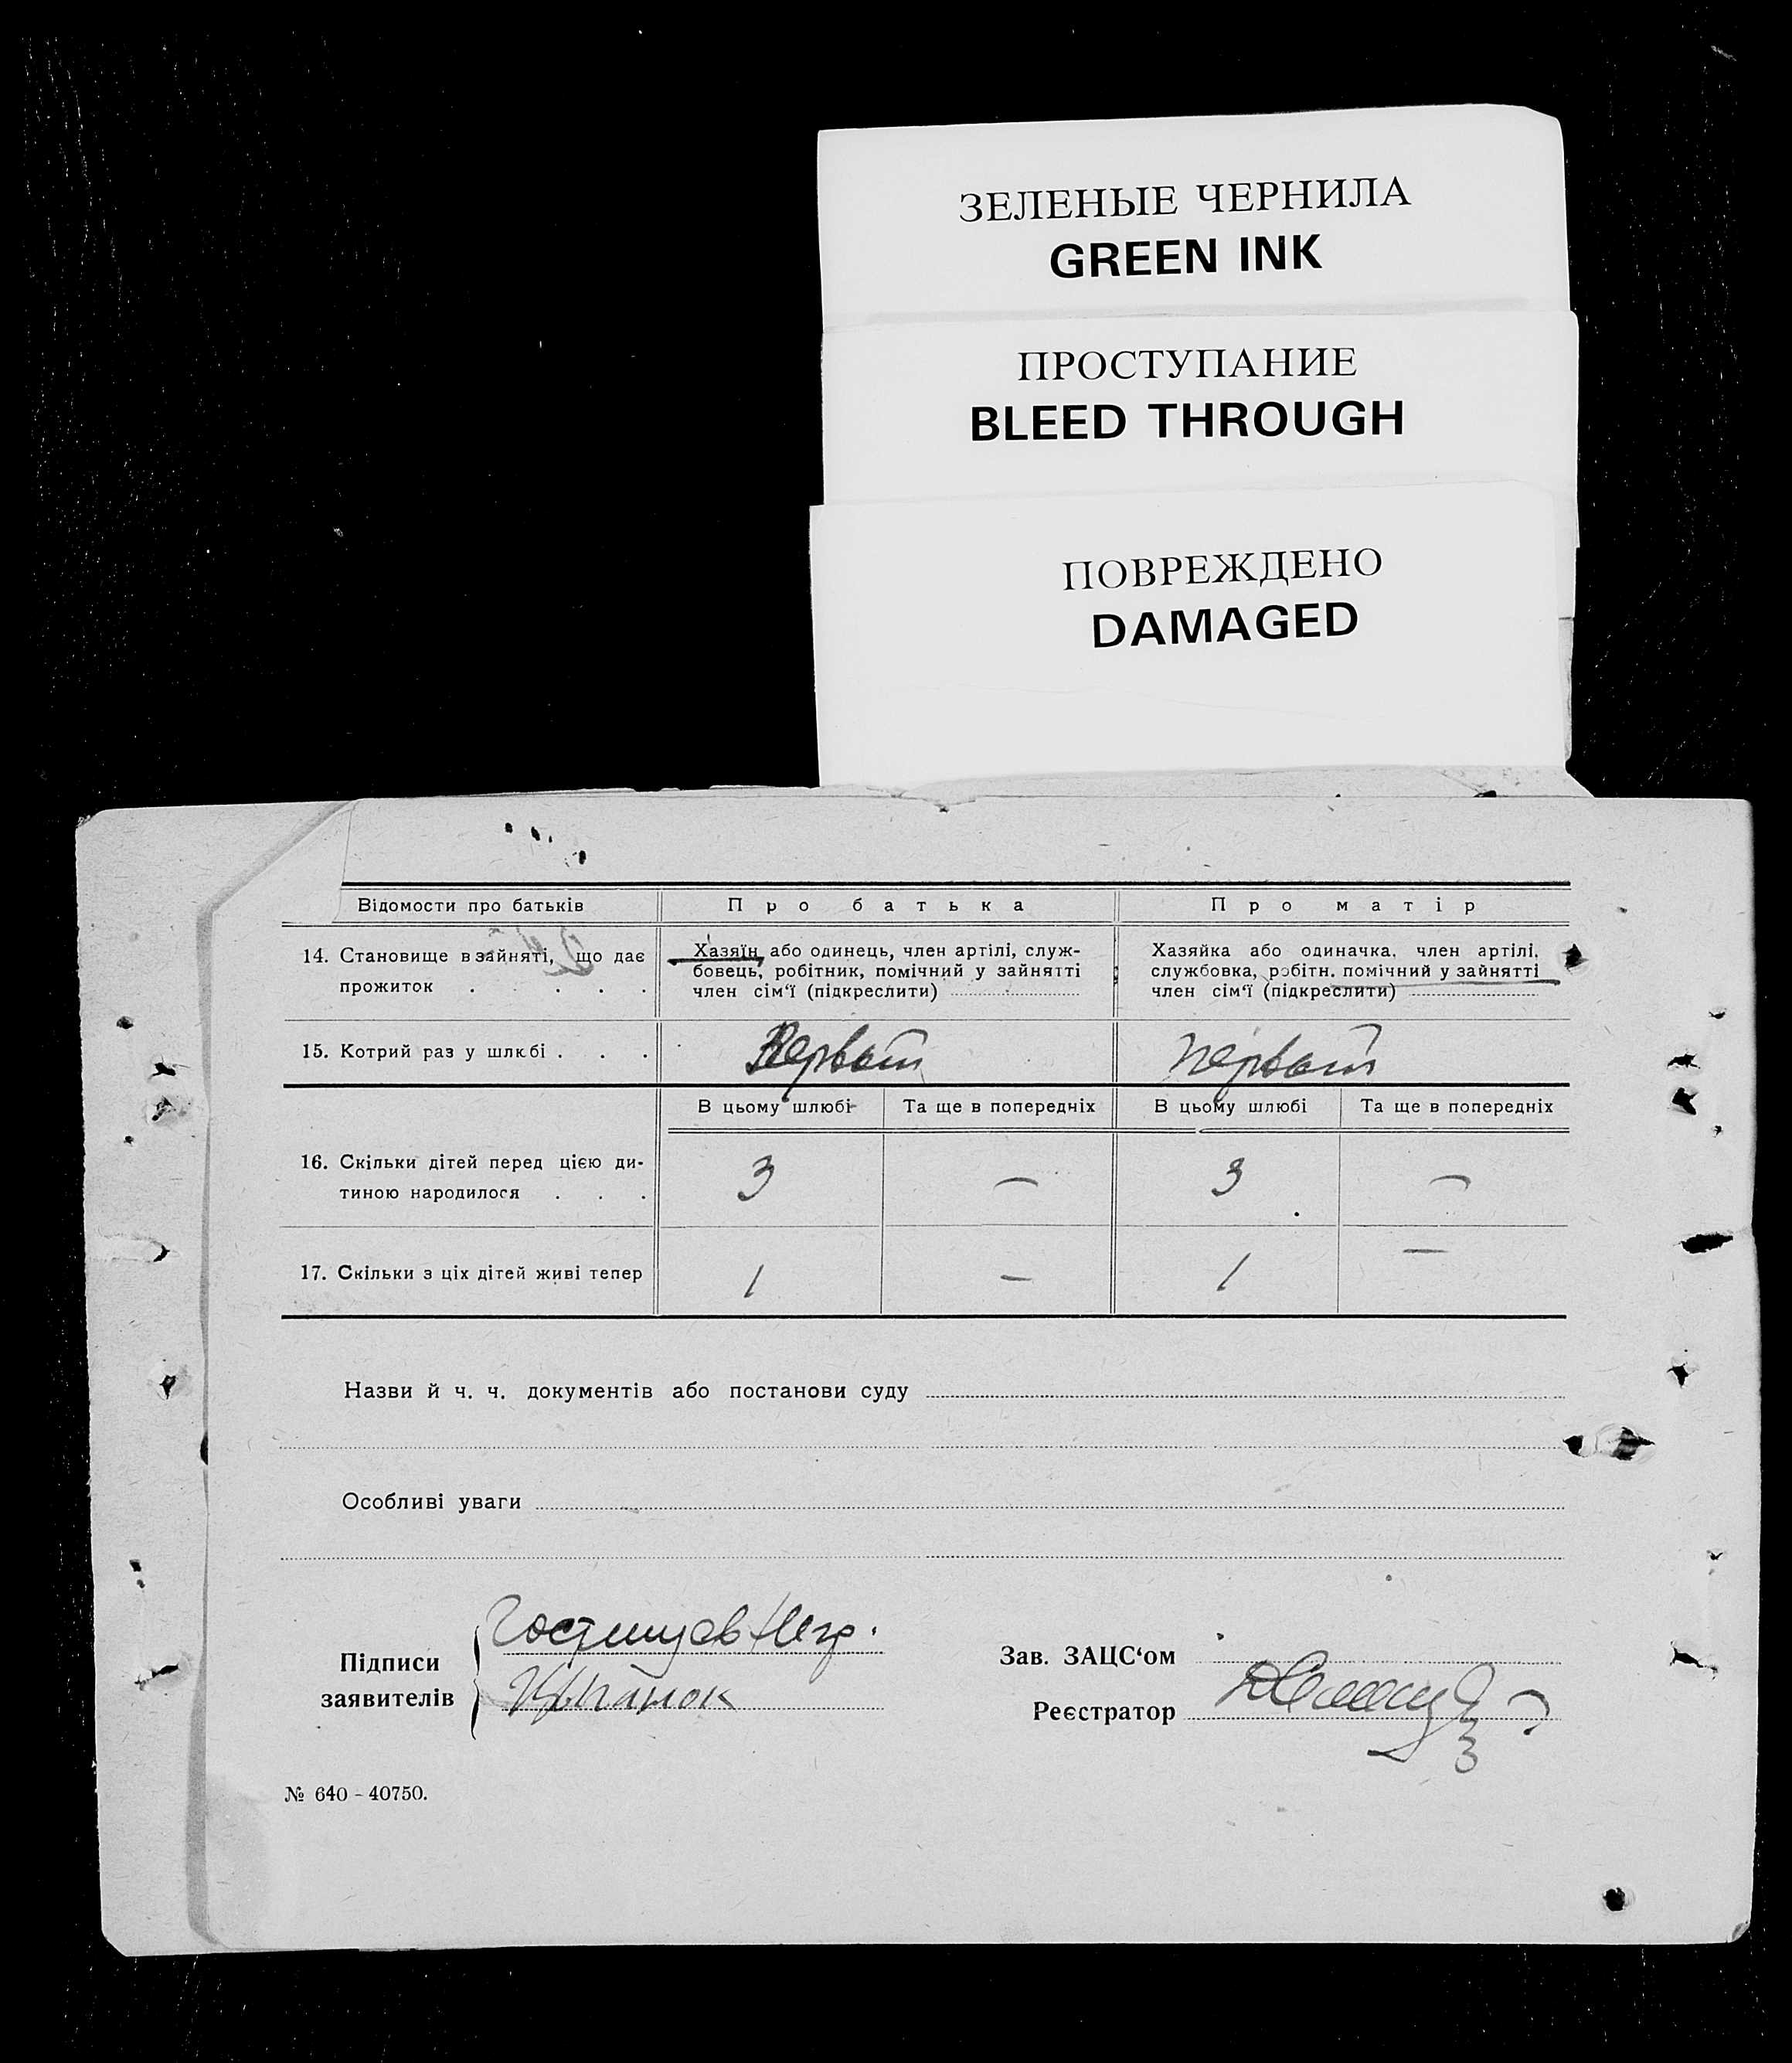 ЗЕЛЕНЫЕ ЧЕРНИЛА
GREEN INK
ПРОСТУПАНИЕ
BLEED THROUGH
ПОВРЕЖДЕНО
DAMAGED
Відомости про батьків
Про батька
Про матір
14. Становище в зайняті, що дає
прожиток . . . . .
Хазяїн, або одинець, член артілі, служ-
бовець, робітник, помічний у зайнятті
член сім‘ї (підкреслити)
Хазяйка або одиначка, член артілі,
службовка, робітн. помічний у зайнятті
член сім‘ї (підкреслити)
15. Котрий раз у шлюбі . . .
Первый
первый
В цьому шлюбі
Та ще в попередніх
В цьому шлюбі
Та ще в попередніх
16. Скільки дітей перед цією ди-
тиною народилося . . .
3
—
3
—
17. Скільки з ціх дітей живі тепер
1
—
1
—
Назви й ч. ч. документів або постанови суду
Особливі уваги
Підписи
заявителів
Зав. ЗАЦС‘ом
Реєстратор
№ 640 - 40750.